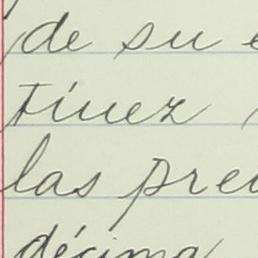 de su
tinez
las
décima